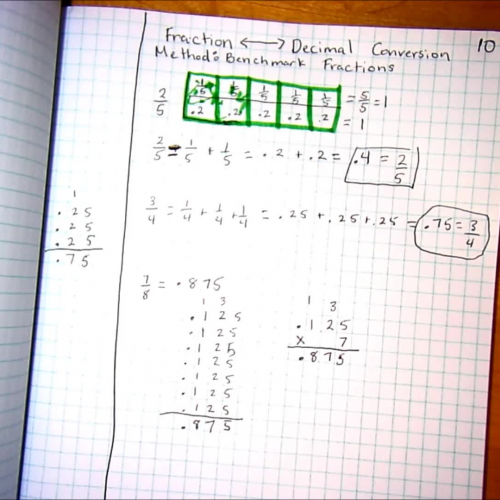 Fraction ⟷ Decimal Conversion 10
Method: Benchmark Fractions
2/5 1/5 1/5 1/5 1/5 1/5 = 5/5 = 1
.2 .2 .2 .2 .2 = 1
2/5 = 1/5 + 1/5 = .2 + .2 = .4 = 2/5
3/4 = 1/4 + 1/4 + 1/4 = .25 + .25 + .25 = .75 = 3/4
1
.25
.25
.25
.75
7/8 = .875
1 3
.125
.125
.125
.125
.125
.125
.125
.875
1 3
.125
x 7
.875